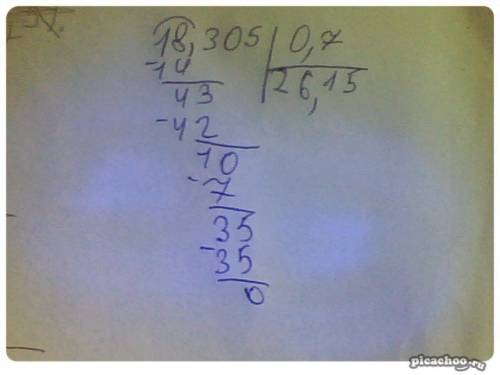 18,305 | 0,7
-14 | 26,15
43
-42
10
-7
35
-35
0
picachoo.ru